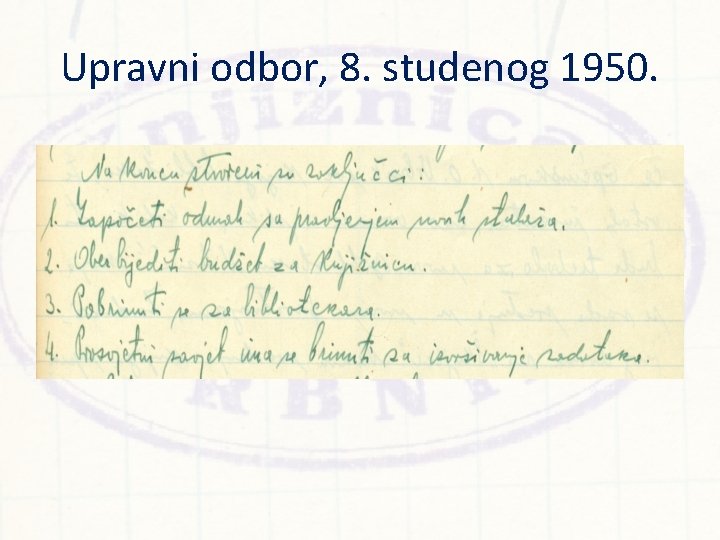 Upravni odbor, 8. studenog 1950.
knjižnica
Na koncu stvoreni su zaključci:
1. Započeti odmah sa pravljenjem novih stalaža.
2. Obezbijediti budžet za knjižnicu.
3. Pobrinuti se za bibliotekara.
4. Prosvjetni savjet ima se brinuti za izvršivanje zadataka.